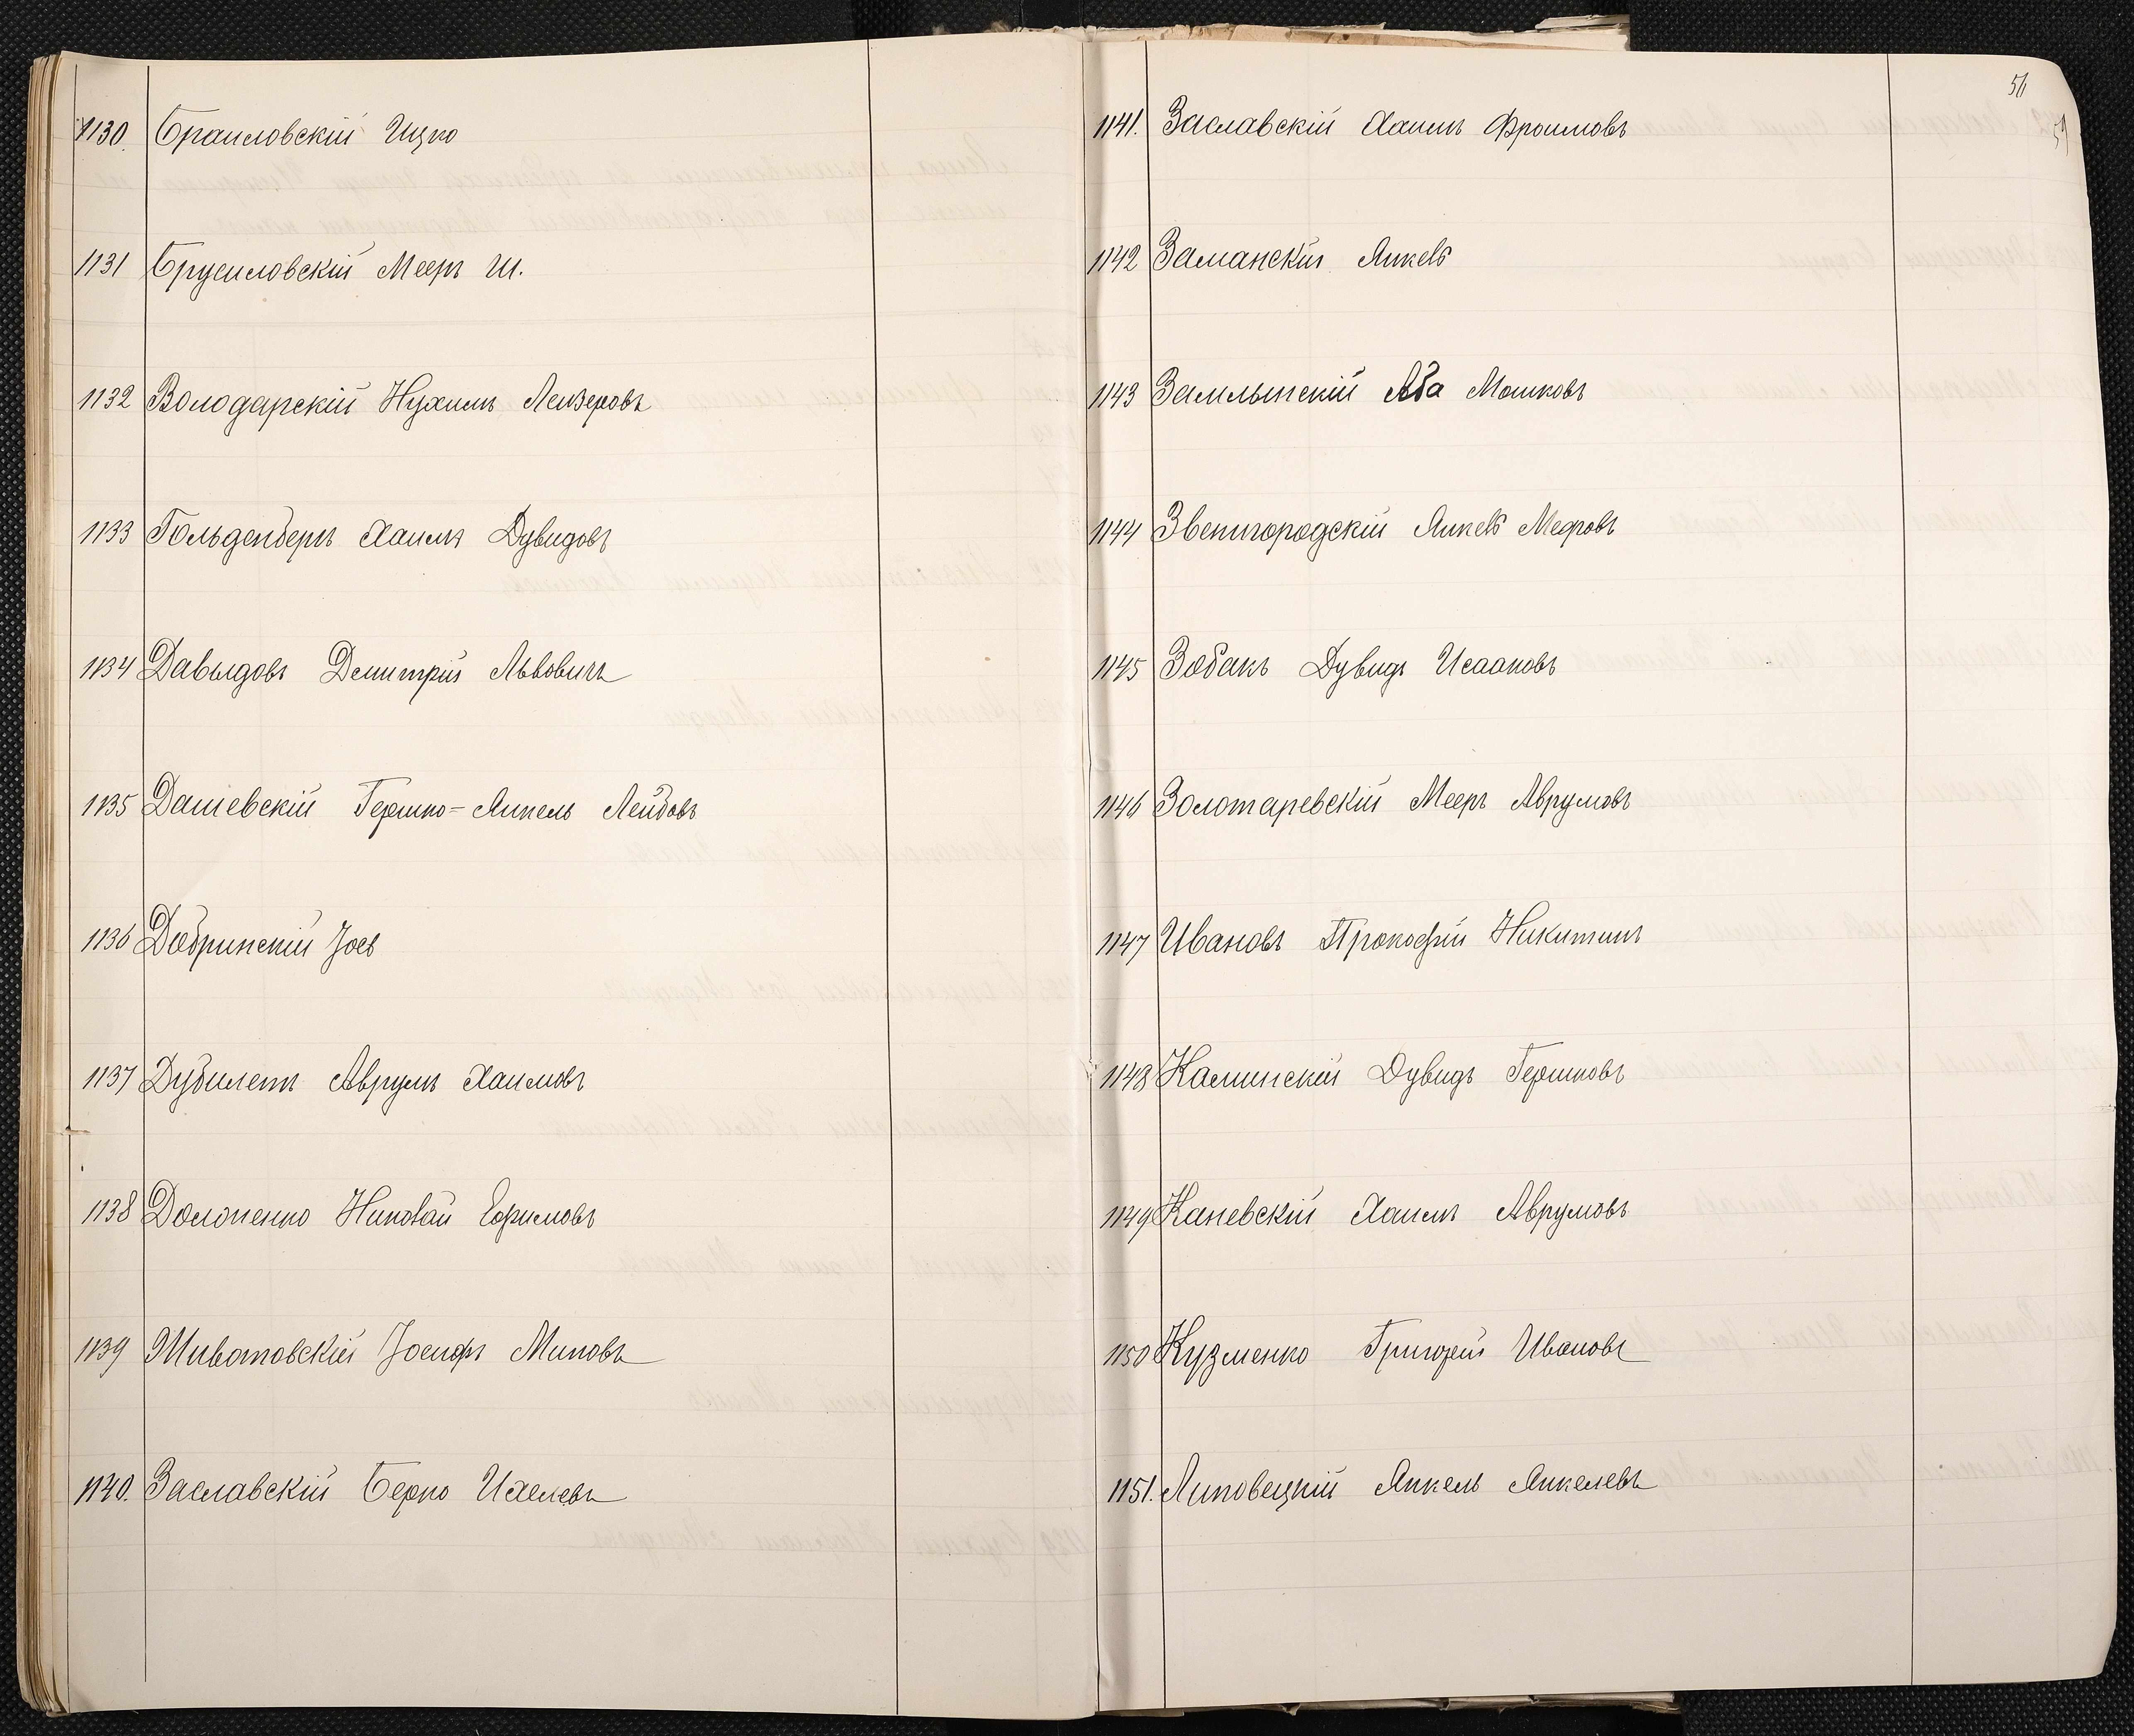 1130. Браиловскій Ицко
1131 Брусиловскій Мееръ Ш.
1132 Володарскій Нухимъ Лейзеровъ
1133 Гольденбергъ Хаимъ Дувидовъ
1134 Давыдовъ Демитрій Львовичъ
1135 Дашевскій Гершко-Янкель Лейбовъ
1136 Добринскій Іосъ
1137 Дубилетъ Аврумъ Хаимовъ
1138 Долопенко Николай Ефимовъ
1139 Животовскій Іосифъ Миновъ
1140. Заславскій Берко Ихелевъ
56
59
1141. Заславскій Хаимъ Фроимовъ
1142 Заманскій Янкель
1143 Замлынскій Аба Мошковъ
1144 Звенигородскій Янкель Мееровъ
1145 Зобакъ Дувидъ Исааковъ
1146 Золотаревскій Мееръ Аврумовъ
1147 Ивановъ Прокофій Никитинъ
1148 Каминскій Дувидъ Гершковъ
1149 Каневскій Хаимъ Аврумовъ
1150 Кузменко Григорій Ивановъ
1151. Липовецкій Янкель Янкелевъ